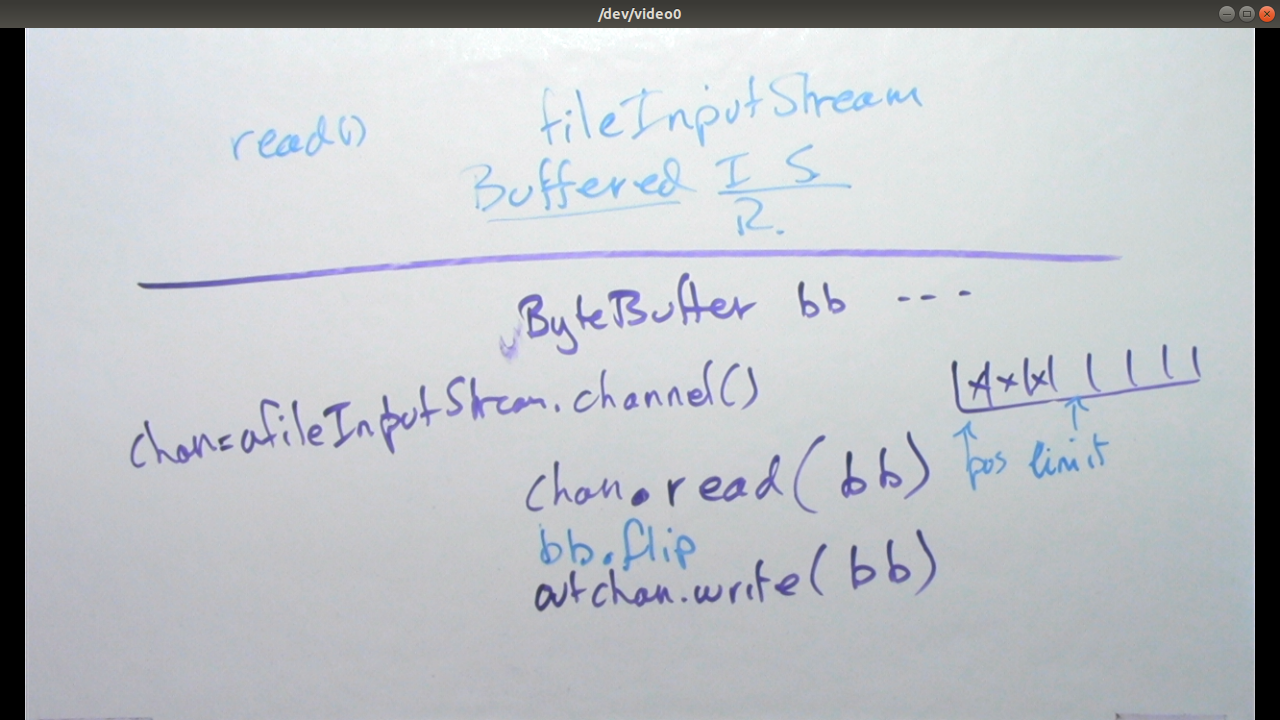 /dev/video0
read() fileInputStream
Buffered I S
R.
ByteBuffer bb ---
chan=afileInputStream.channel()
x x x
pos limit
chan.read(bb)
bb.flip
outchan.write(bb)